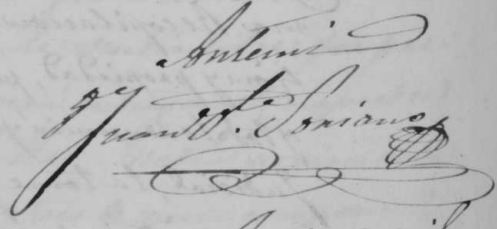 Antemi
Juan F. Soriano